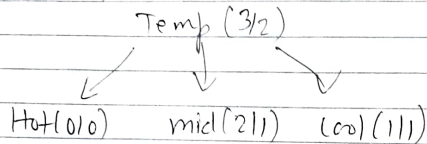 Temp (3/2)
Hot (0/0) mid (2/1) Cool (1/1)